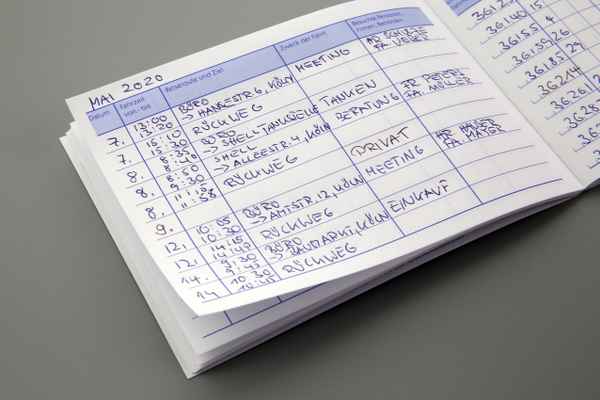 MAI 2020
Datum Fahrzeit von - bis Reiseroute und Ziel Zweck der Fahrt Besuchte Personen, Firmen, Behörden
7. 13:00 13:20 BÜRO → HANSESTR. 6, KÖLN MEETING FA. VELTEN
7. 15:10 15:30 RÜCKWEG
8. 8:35 BÜRO → SHELL TANKSTELLE TANKEN
8. 9:30 SHELL → ALLEESTR. 4, KÖLN BERATUNG FR. PETERS FA. MÜLLER
8. 11:58 RÜCKWEG
9. PRIVAT
12. 10:05 10:30 BÜRO → AMTSTR. 12, KÖLN MEETING HR. MAISER FA. MAYER
12. 14:15 14:47 RÜCKWEG
14. 9:30 9:45 BÜRO → BAUMARKT, KÖLN EINKAUF
14 10:30 10:45 RÜCKWEG
36140 15
36155 4
36159 26
36185 29
36214